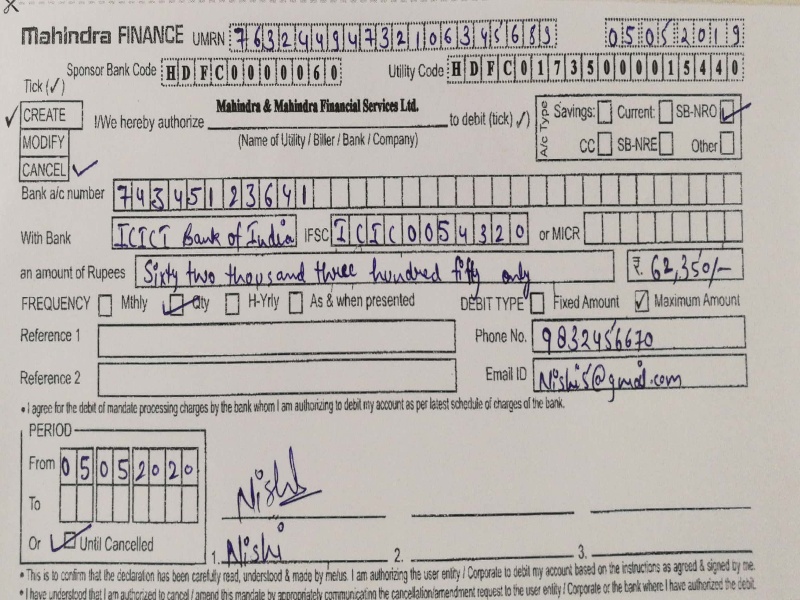 Mahindra FINANCE UMRN 76324494732106345689 05052019
Sponsor Bank Code HDFC0000060 Utility Code HDFC01735000015440
Tick (✓)
CREATE
MODIFY
CANCEL
I/We hereby authorize Mahindra & Mahindra Financial Services Ltd. to debit (tick ✓)
(Name of Utility / Biller / Bank / Company)
A/c Type Savings: Current: SB-NRO
CC SB-NRE Other
Bank a/c number 74345123641
With Bank ICICI Bank of India IFSC ICIC0054320 or MICR
an amount of Rupees Sixty two thousand three hundred fifty only ₹. 62,350/-
FREQUENCY Mthly Qty H-Yrly As & when presented DEBIT TYPE Fixed Amount Maximum Amount
Reference 1 Phone No. 9832456670
Reference 2 Email ID Nishi5@gmail.com
• I agree for the debit of mandate processing charges by the bank whom I am authorizing to debit my account as per latest schedule of charges of the bank.
PERIOD
From 05052020
To
Or Until Cancelled
Nishi
1. Nishi 2. 3.
• This is to confirm that the declaration has been carefully read, understood & made by me/us. I am authorizing the user entity / Corporate to debit my account based on the instructions as agreed & signed by me.
• I have understood that I am authorized to cancel / amend this mandate by appropriately communicating the cancellation/amendment request to the user entity / Corporate or the bank where I have authorized the debit.